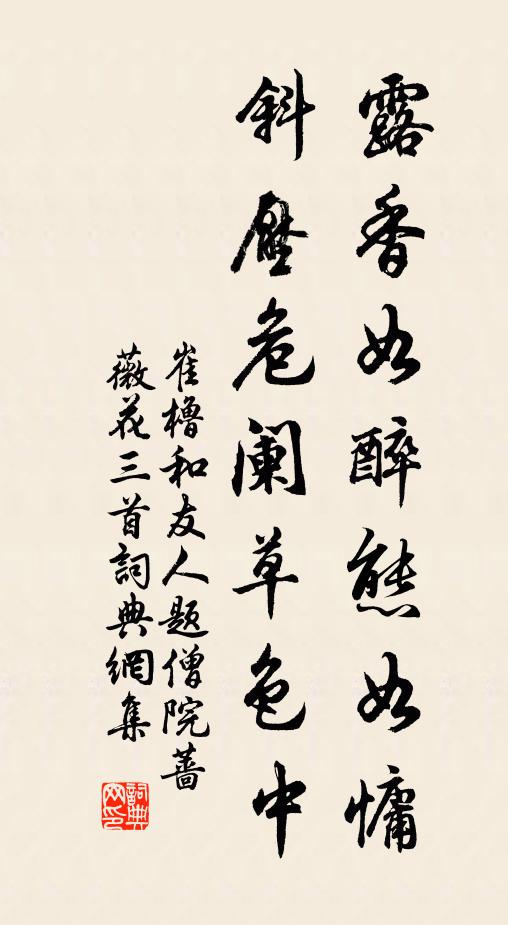 露香如醉態如慵
斜壓危闌草色中
崔櫓和友人題僧院薔
薇花三首詞典網集
詞典网印